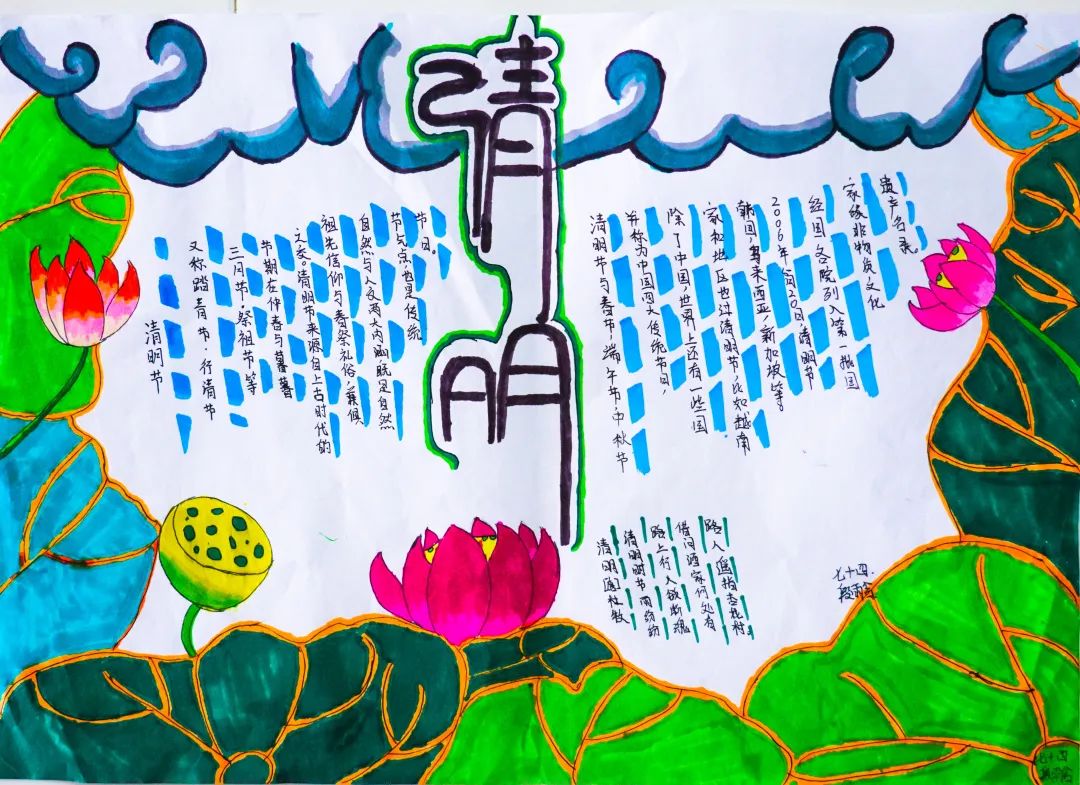 清明
清明节
又称踏青节,行清节
三月节,祭祖节等
节期在仲春与暮春
之交。清明节来源自上古时代的
祖先信仰与春祭礼俗,兼候
自然与人文两大内涵既是自然
节气点,也是传统
节日。
清明节与春节,端午节,中秋节
并称为中国四大传统节日,
除了中国,世界上还有一些国
家和地区也过清明节,比如越南
韩国,马来西亚,新加坡等。
2006年5月20日清明节
经国务院列入第一批国
家级非物质文化
遗产名录。
清明 杜牧
清明时节雨纷纷
路上行人欲断魂
借问酒家何处有
路人遥指杏花村
七十四.
七十四